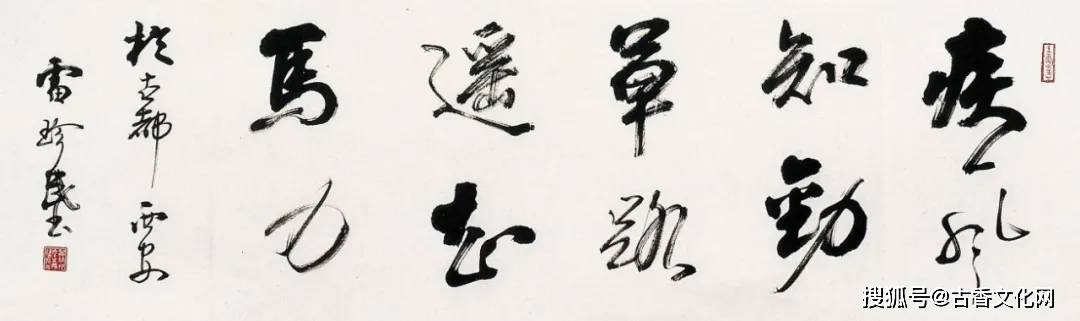 疾風
知勁
草路
遥知
馬力
於古都西安
雷珍民書
搜狐号@古香文化网